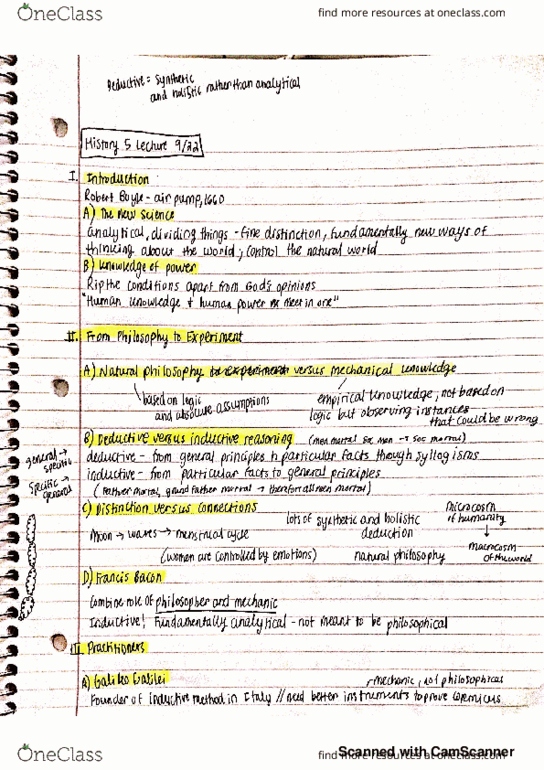 OneClass
find more resources at oneclass.com
Deductive = synthetic
and holistic rather than analytical
History 5 Lecture 9/22
I. Introduction
Robert Boyle - air pump, 1660
A) The New Science
analytical, dividing things - fine distinction, fundamentally new ways of
thinking about the world; control the natural world
B) Knowledge of power
Rip the conditions apart from God's opinions
"Human knowledge + human power meet in one"
II. From Philosophy to Experiment
A) Natural philosophy versus mechanical knowledge
based on logic
and absolute assumptions
empirical knowledge, not based on
logic but observing instances
that could be wrong
B) Deductive versus inductive reasoning (men mortal soc men → soc mortal)
general →
specific
specific →
general
deductive - from general principles to particular facts though syllogisms
inductive - from particular facts to general principles
(father mortal, grand father mortal → therefor all men mortal)
C) Distinction versus connections
lots of synthetic and holistic
deduction
microcosm
of humanity
↓
macrocosm
of the world
Moon → waves → menstrual cycle
(women are controlled by emotions)
natural philosophy
D) Francis Bacon
Combine role of philosopher and mechanic
Inductive! Fundamentally analytical - not meant to be philosophical
III. Practitioners
A) Galileo Galilei
mechanic, not philosophical
Founder of inductive method in Italy // need better instruments to prove Copernicus
OneClass
find more resources at oneclass.com
Scanned with CamScanner